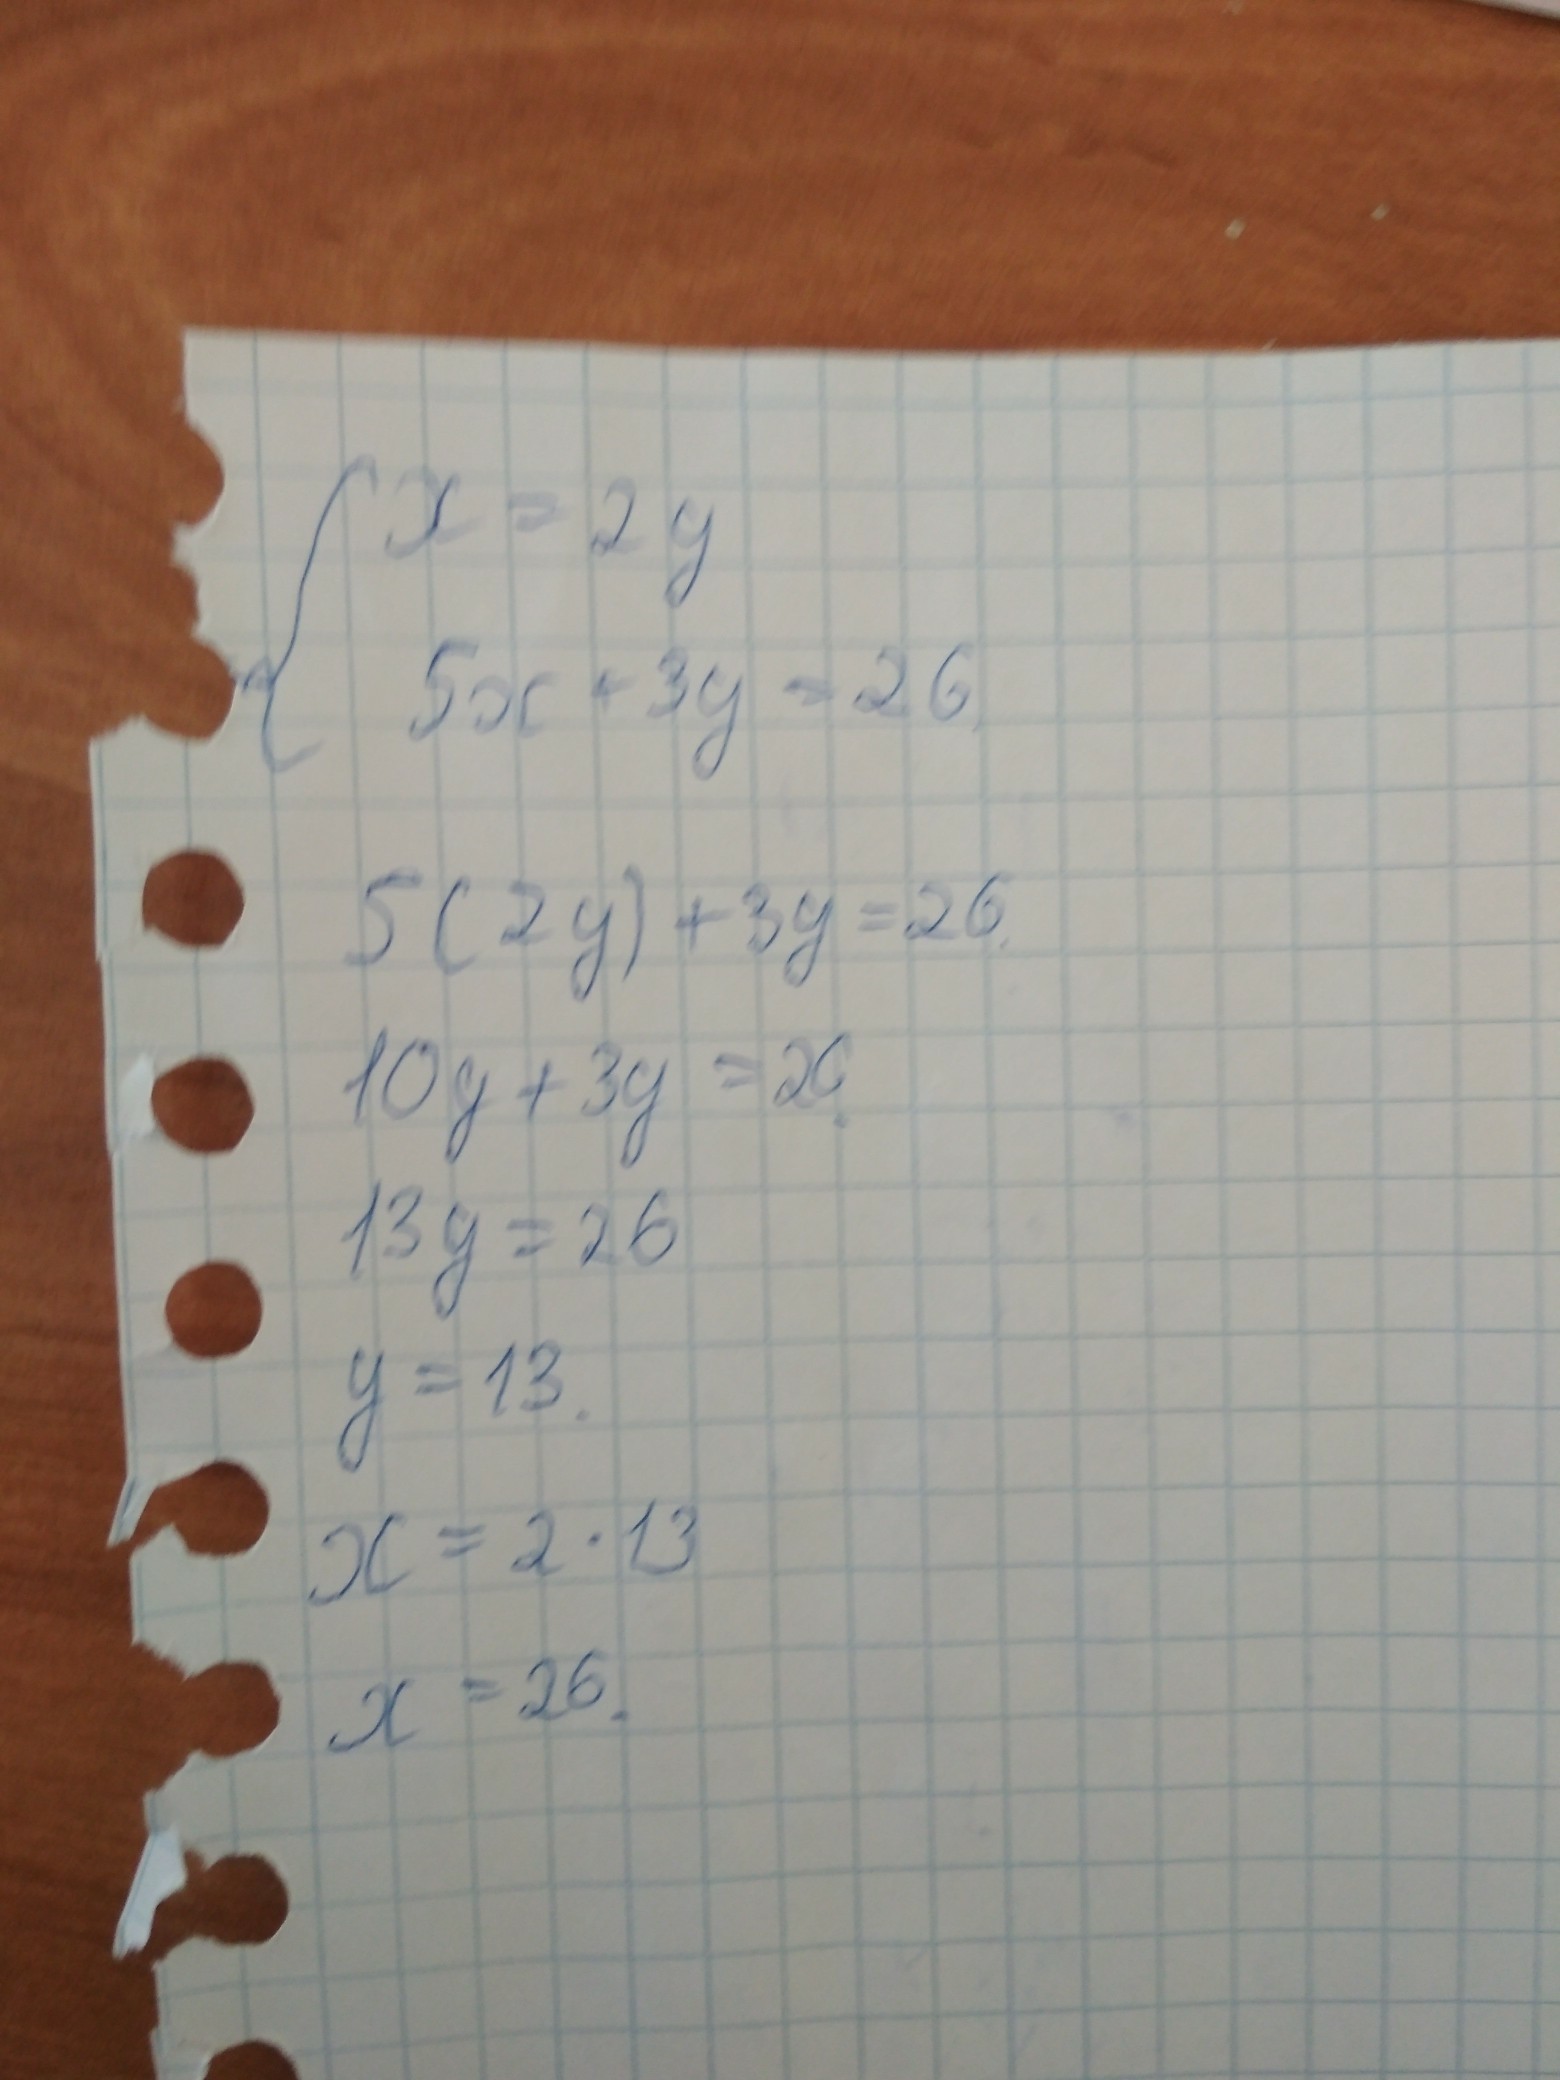 { x = 2y
5x + 3y = 26
5(2y) + 3y = 26
10y + 3y = 26
13y = 26
y = 13.
x = 2 · 13
x = 26.